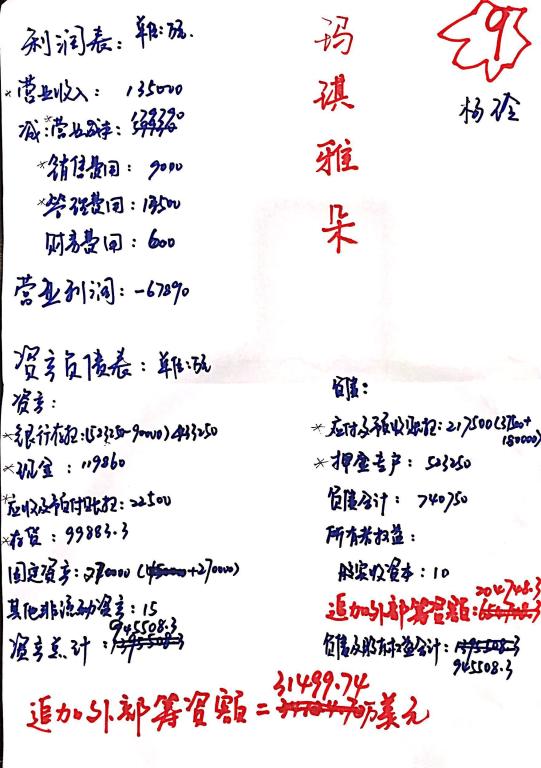 利润表：单位：万元.
玛琪雅朵
9
杨玲
*营业收入： 135000
减：*营业成本： 179790
*销售费用： 9000
*管理费用： 13500
财务费用： 600
营业利润： -67890
资产负债表：单位：万元
资产：
*银行存款：(523250-90000) 433250
*现金： 119860
*应收及预付账款：22500
*存货： 99883.3
固定资产：270000 (45000+270000)
其他非流动资产：15
资产总计： 945508.3 1395508.3
负债：
*应付及预收账款：217500(37500+180000)
*押金专户： 523250
负债合计： 740750
所有者权益：
股实收资本：10
追加外部筹资额：204748.3 654748.3
负债及股东权益合计：1395508.3
945508.3
追加外部筹资额=31499.74 万美元